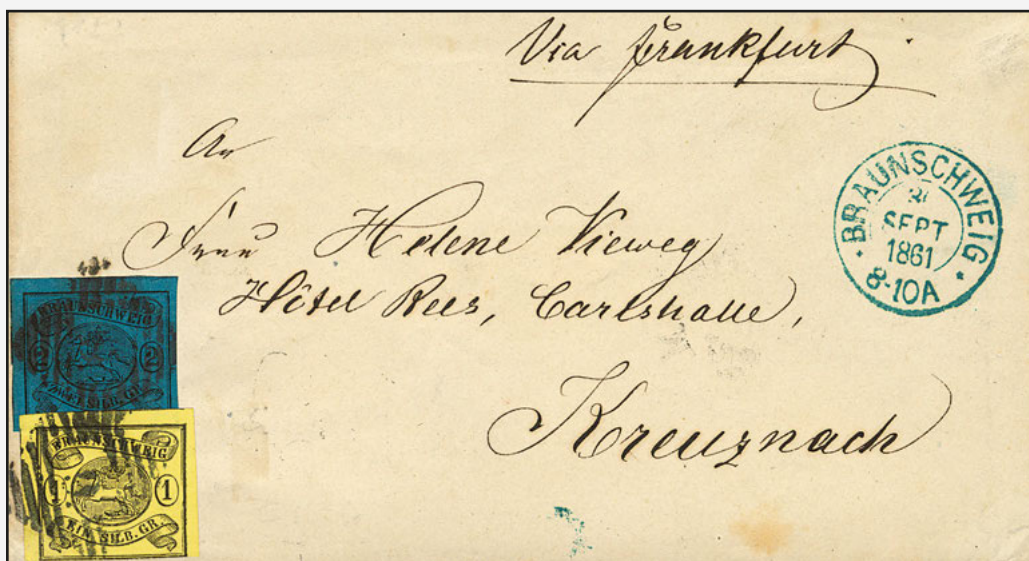 Via Frankfurt
An
Frau Helene Vieweg
Hôtel Rees, Carlshalle,
Kreuznach
BRAUNSCHWEIG
SEPT
1861
8-10A
BRAUNSCHWEIG
2 2
ZWEI SILB. GR.
BRAUNSCHWEIG
1 1
EIN SILB. GR.